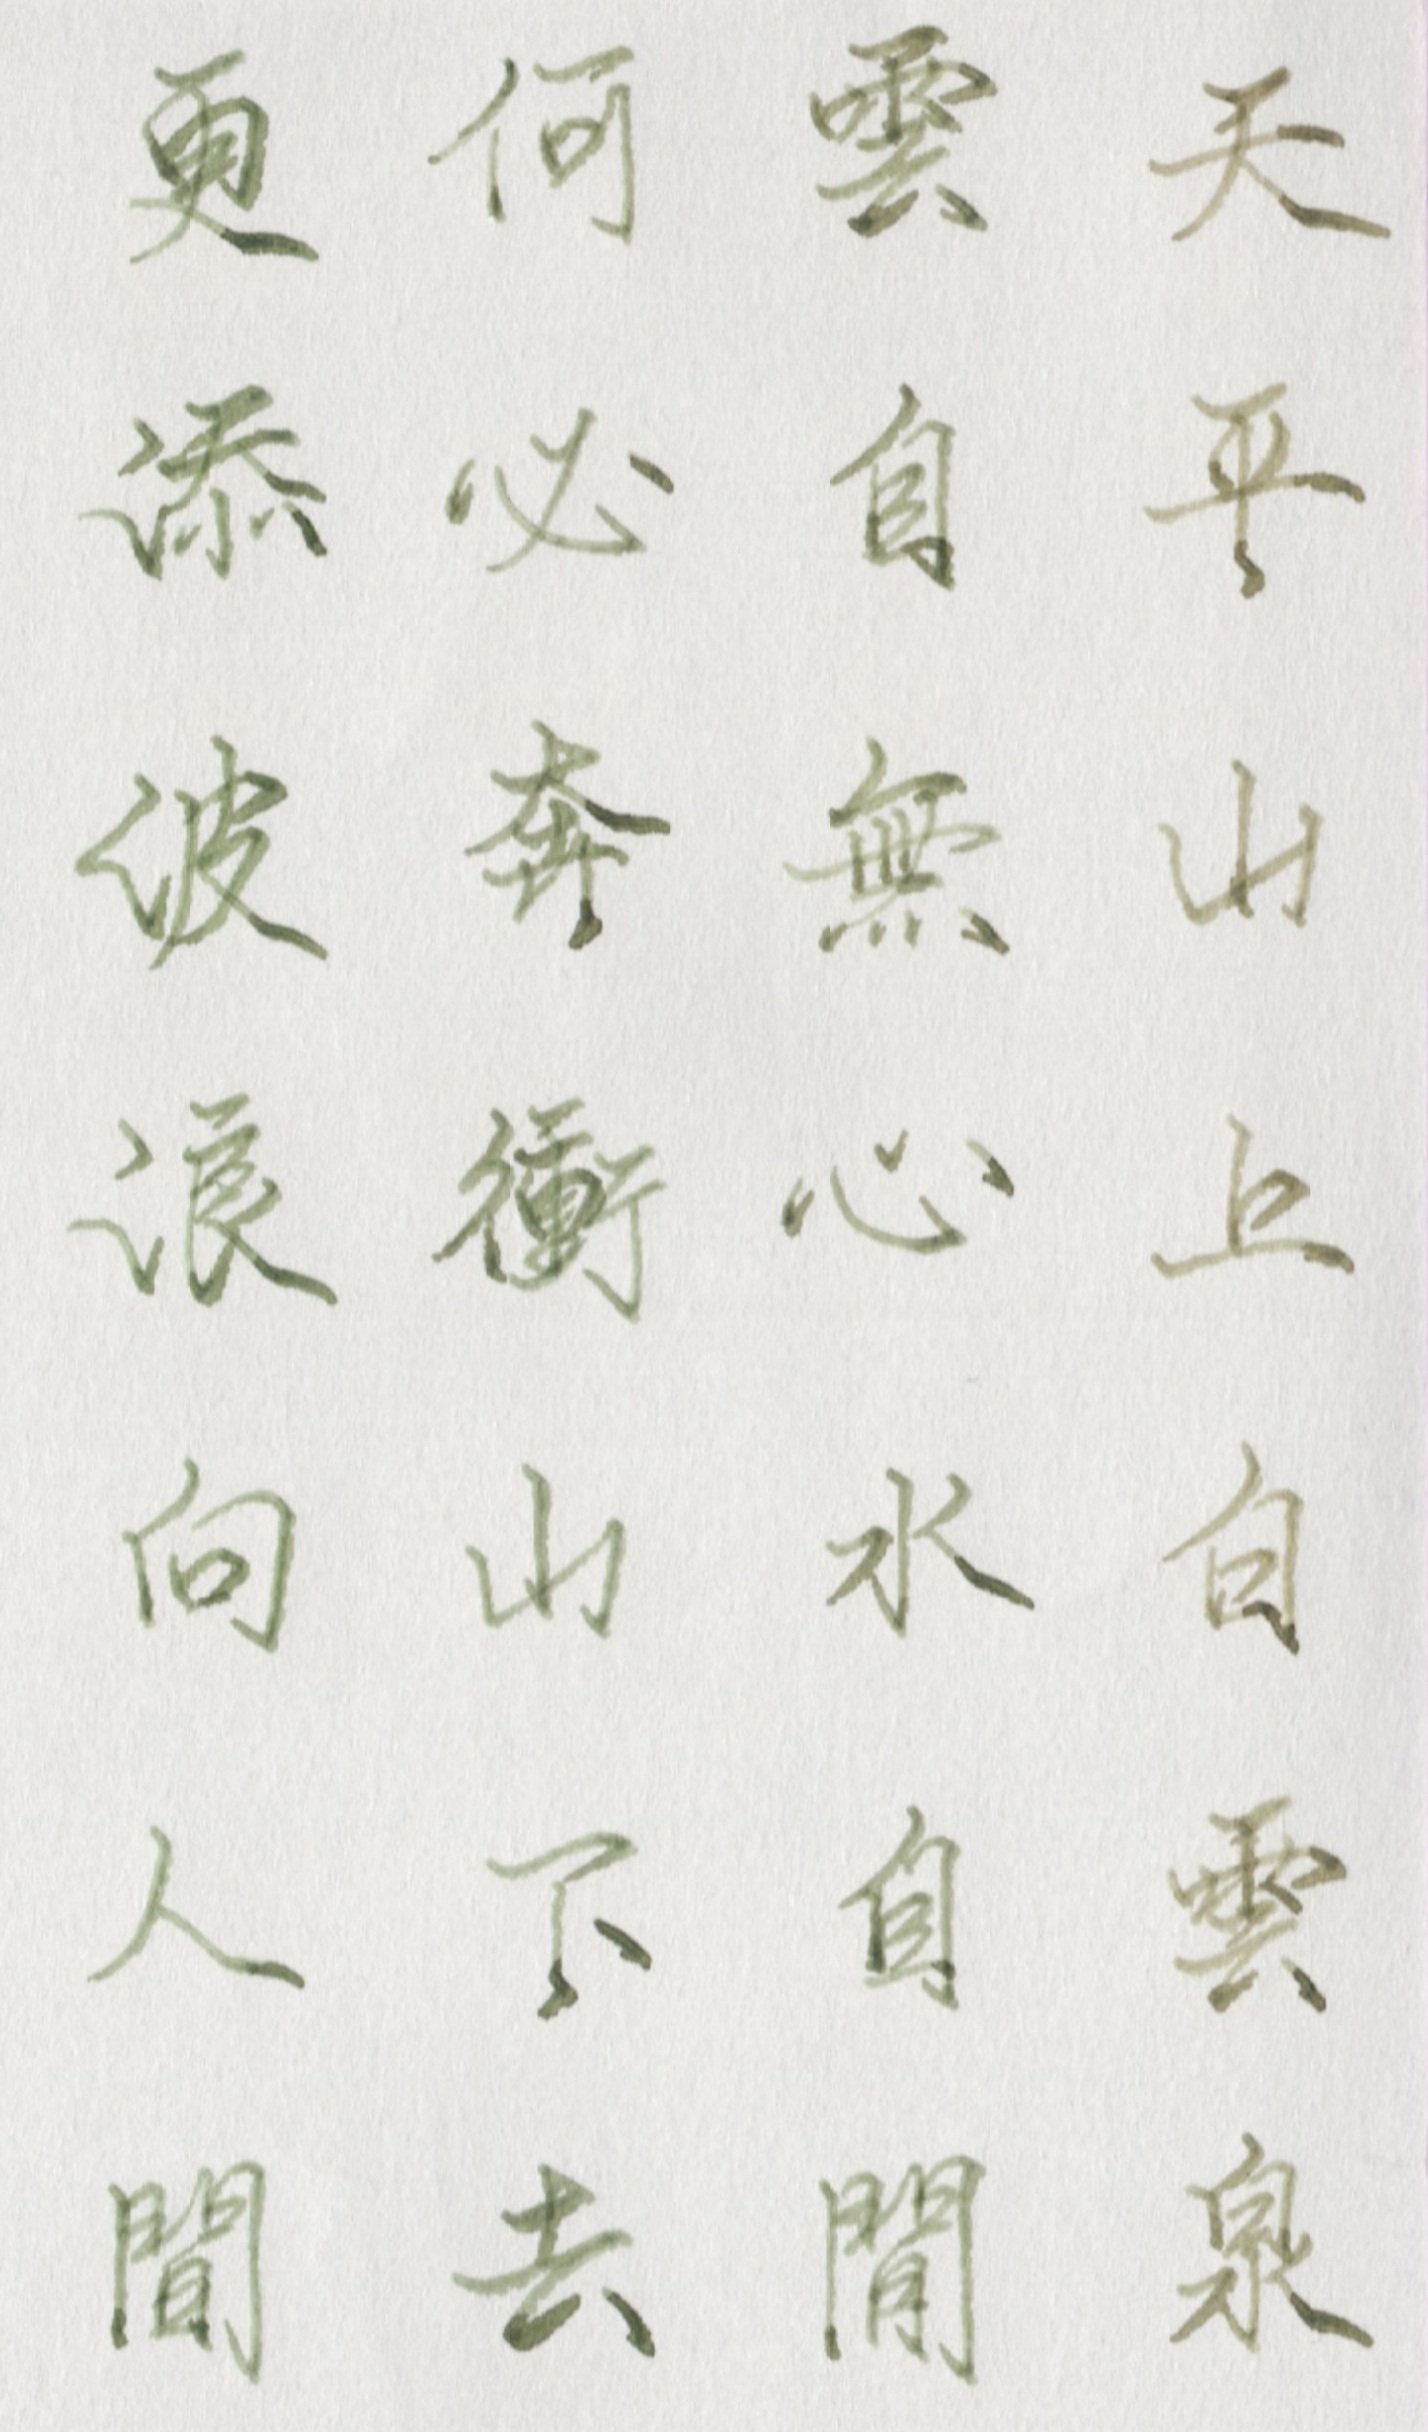 天平山上白雲泉
雲自無心水自閒
何必奔衝山下去
更添波浪向人間